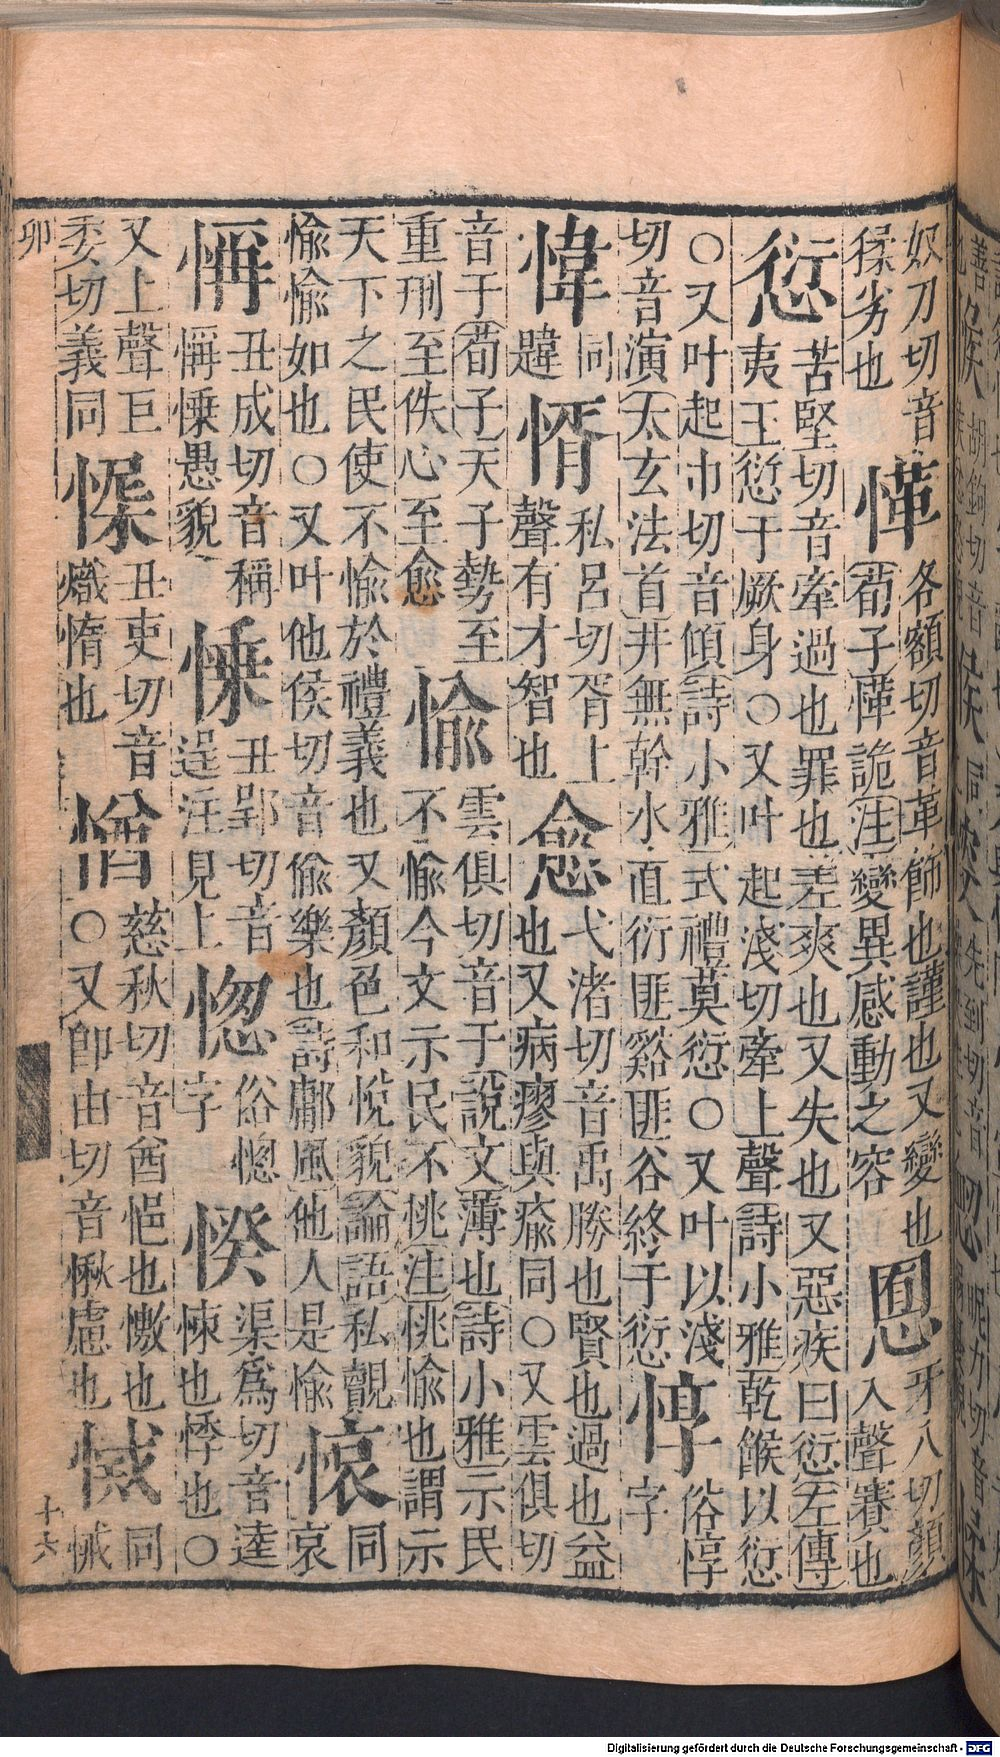 奴刀切音
猱劣也
愅
各額切音革飾也謹也又變也
荀子愅詭注變異感動之容
恖
牙八切顏
入聲賽也
愆
苦堅切音牽過也罪也差爽也又失也又惡疾曰愆左傳
夷王愆于厥身〇又叶起淺切牽上聲詩小雅乾餱以愆
〇又叶起巾切音傾詩小雅式禮莫愆〇又叶以淺
切音演太玄法首井無幹水直衍匪谿匪谷終于衍愆
惸
俗惸
字
愇
同
韙
㥠
私呂切胥上
聲有才智也
愈
弋渚切音禹勝也賢也過也益
也又病瘳與瘉同〇又雲俱切
音于荀子天子勢至
重刑至佚心至愈
愉
雲俱切音于說文薄也詩小雅示民
不愉今文示民不恌注恌愉也謂示
天下之民使不愉於禮義也又顏色和悅貌論語私覿
愉愉如也〇又叶他侯切音偷樂也詩鄘風他人是愉
㥋
同
哀
㥃
丑成切音稱
㥃㥄愚貌
㥄
丑郢切音
逞注見上
惚
俗惚
字
悸
渠為切音逵
悚也悸也〇
又上聲巨
委切義同
㥎
丑吏切音
熾惰也
㥢
慈秋切音酋悒也慠也
〇又卽由切音愀慮也
㦎
同
悈
卯
十六
Digitalisierung gefördert durch die Deutsche Forschungsgemeinschaft - DFG